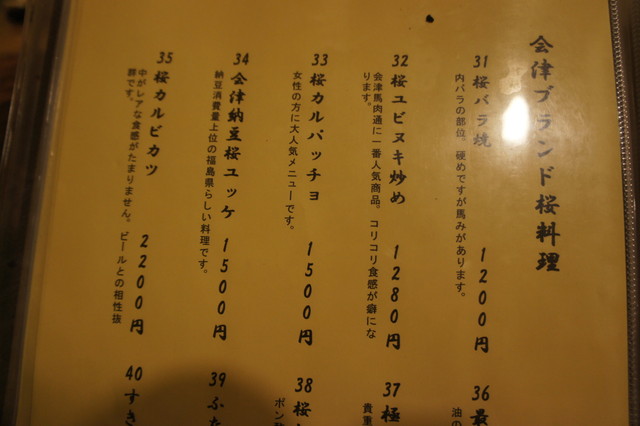 会津ブランド桜料理
31 桜バラ焼 1200円
内バラの部位。硬めですが馬みがあります。
32 桜ユビヌキ炒め 1280円
会津馬肉通に一番人気商品。コリコリ食感が癖にな
ります。
33 桜カルパッチョ 1500円
女性の方に大人気メニューです。
34 会津納豆桜ユッケ 1500円
納豆消費量上位の福島県らしい料理です。
35 桜カルビカツ 2200円
中がレアな食感がたまりません。ビールとの相性抜
群です。
36 最
油の
37 極
貴重
38 桜
ポン
39 ふた
40 すき